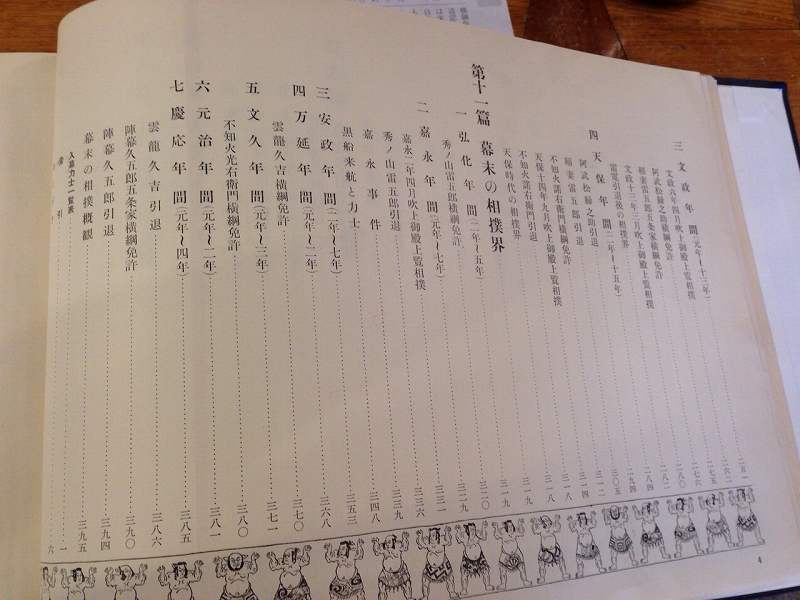 三文政年間(元年〜十三年)……二五一
文政六年四月吹上御殿上覧相撲……二六二
阿武松緑之助横綱免許……二七五
稲妻雷五郎五条家横綱免許……二七六
文政十三年三月吹上御殿上覧相撲……二八〇
雷電引退後の相撲界……二八二
四天保年間(二年〜十五年)……二八四
阿武松緑之助引退……二九四
稲妻雷五郎引退……三〇五
不知火諾右衛門横綱免許……三一二
天保十四年九月吹上御殿上覧相撲……三一四
不知火諾右衛門引退……三一八
天保時代の相撲界……三一九
第十一篇 幕末の相撲界
一弘化年間(二年〜五年)……三二〇
秀ノ山雷五郎横綱免許……三二九
二嘉永年間(元年〜七年)……三三一
嘉永二年四月吹上御殿上覧相撲……三三六
秀ノ山雷五郎引退……三三九
嘉永事件……三四八
黒船来航と力士……三五三
三安政年間(二年〜七年)……三六八
四万延年間(元年〜二年)……三七〇
雲龍久吉横綱免許……三七一
五文久年間(元年〜三年)……三八〇
不知火光右衛門横綱免許……三八一
六元治年間(元年〜二年)
七慶応年間(元年〜四年)……三八五
雲龍久吉引退……三八六
陣幕久五郎五条家横綱免許……三九〇
陣幕久五郎引退……三九四
幕末の相撲概観……三九五
入幕力士一覧表……一
索引……六
4